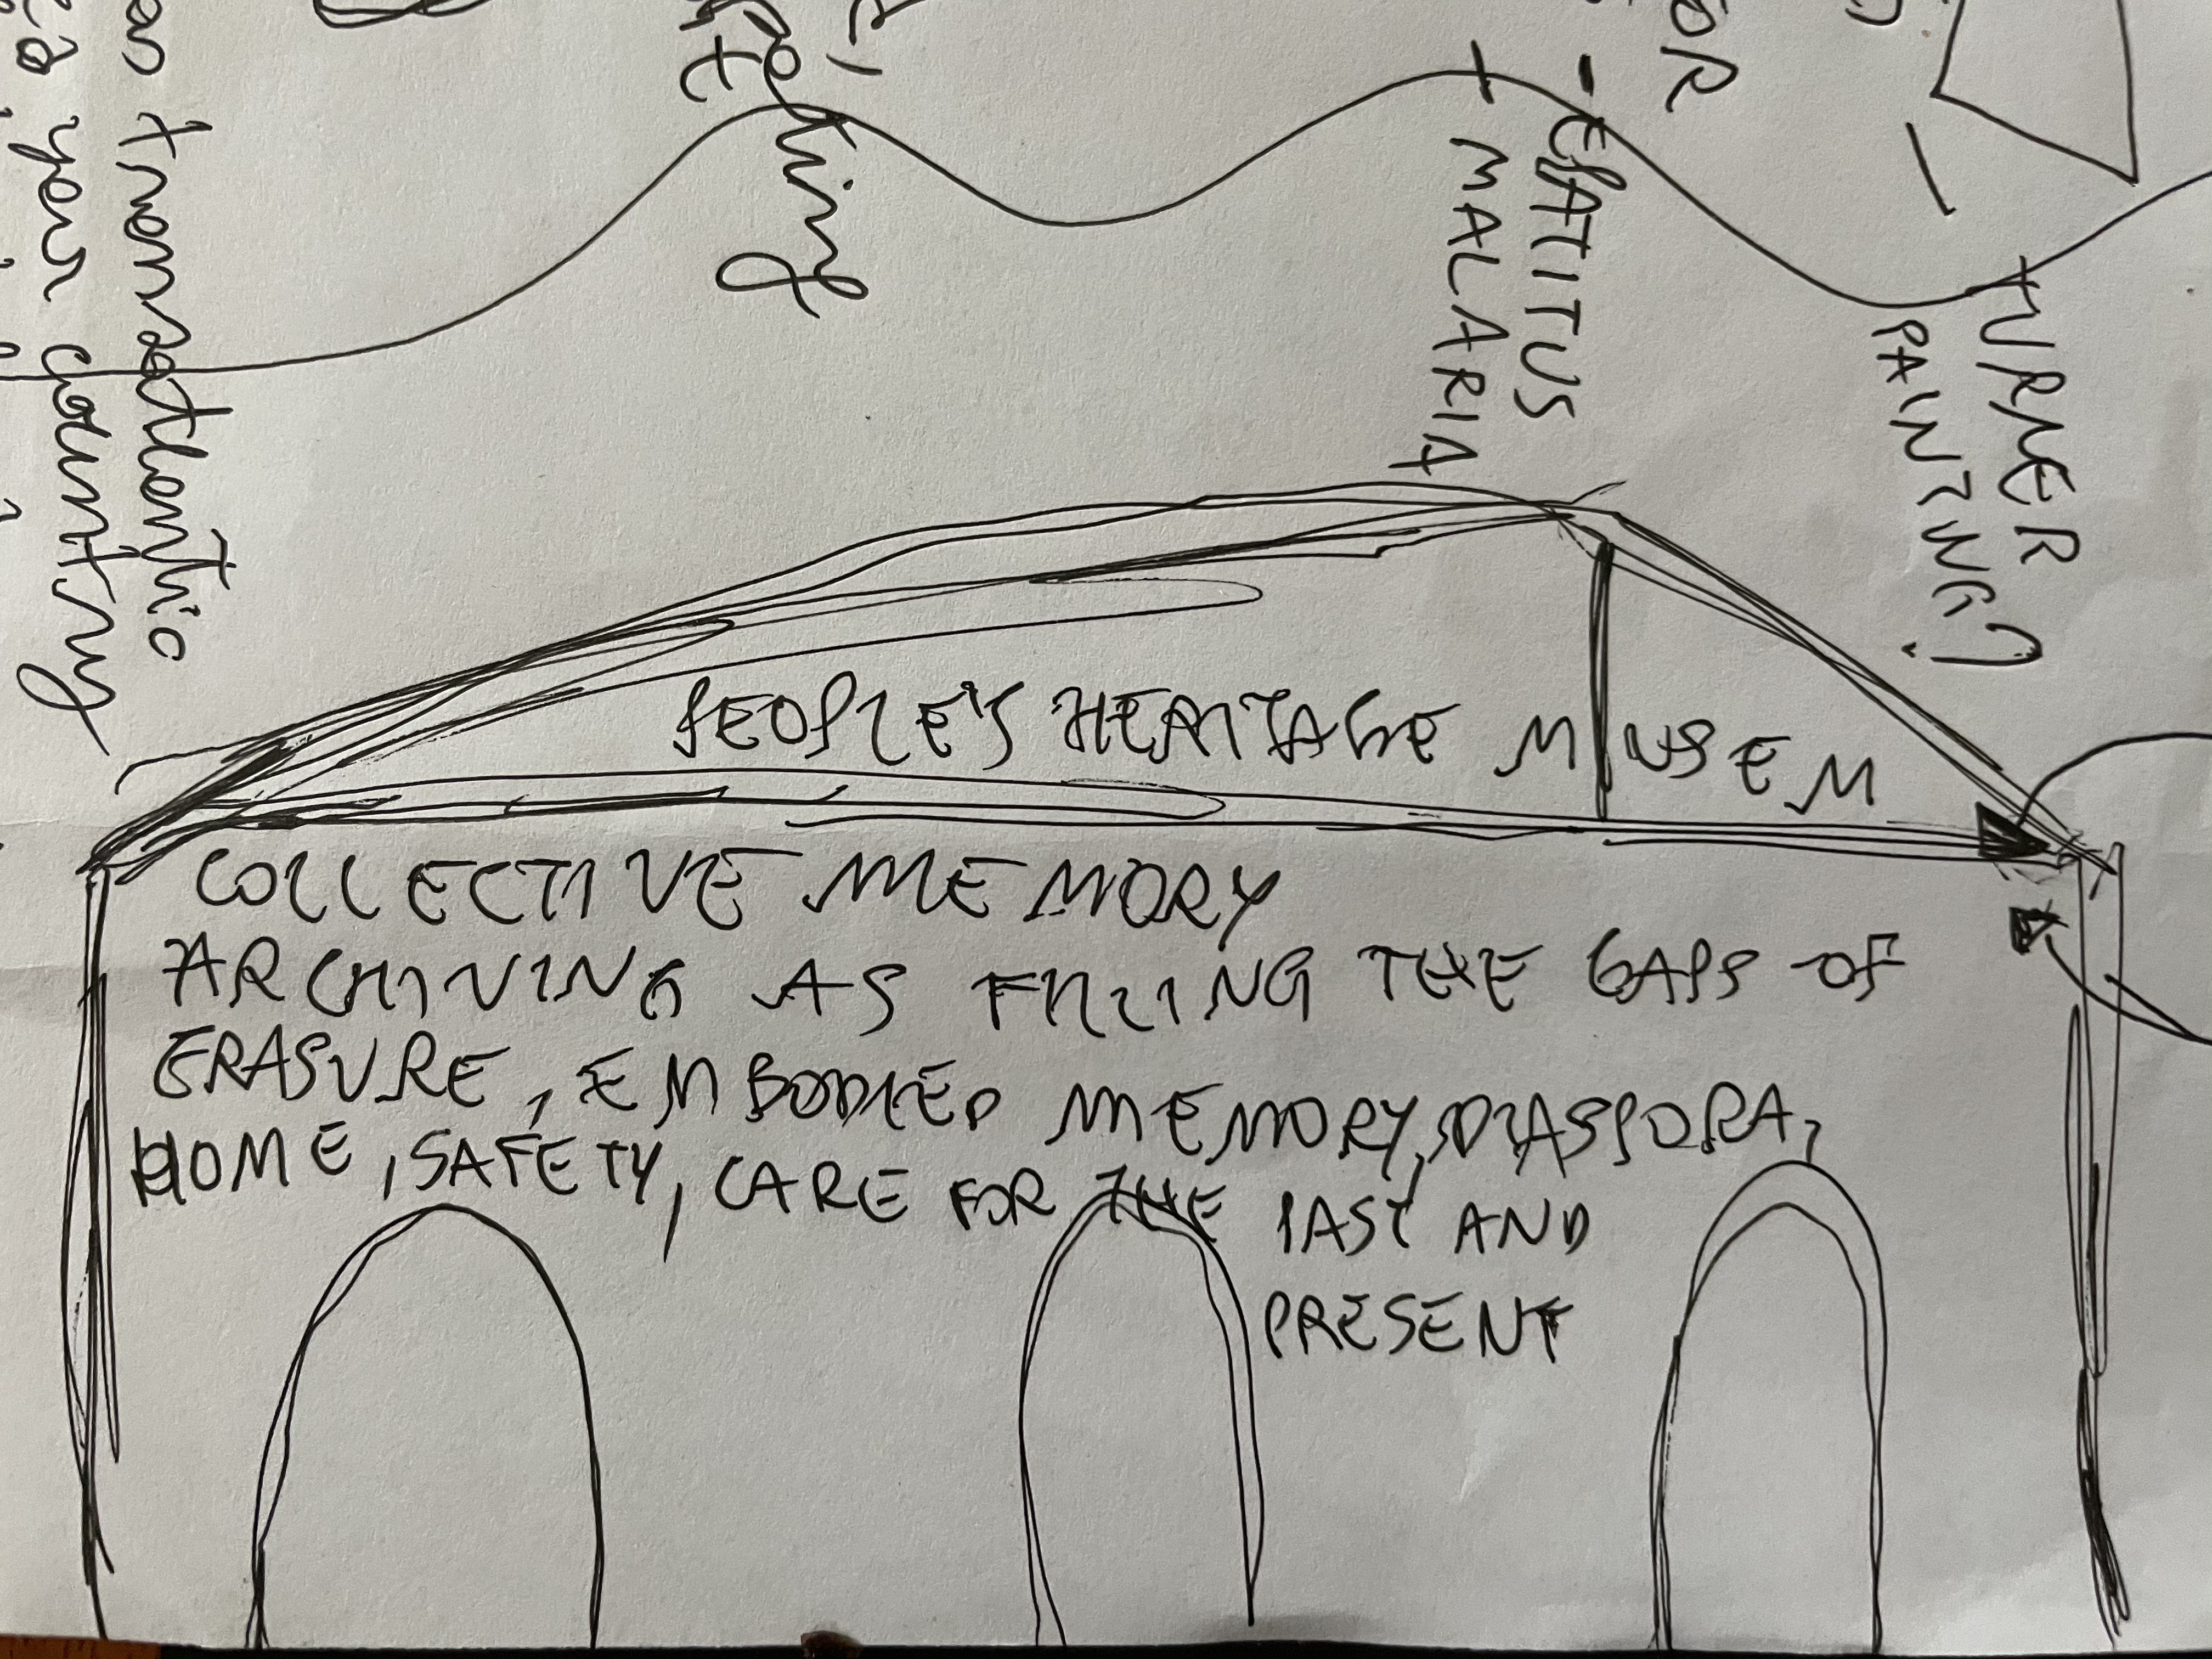 PEOPLE'S HERITAGE MUSEM
COLLECTIVE MEMORY
ARCHIVING AS FILLING THE GAPS OF
ERASURE, EMBODIED MEMORY, DIASPORA,
HOME, SAFETY, CARE FOR THE PAST AND
PRESENT
TURNER
PAINTING?
OR
- EPATITUS
+ MALARIA
transatlantic
your country